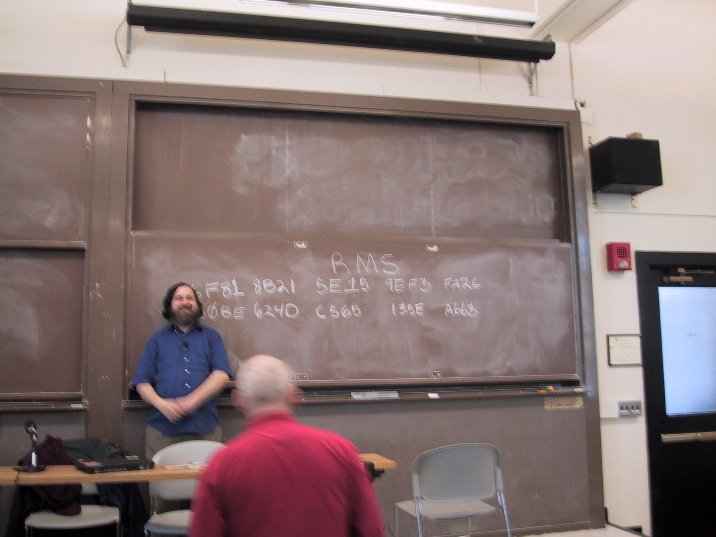 RMS
6F81 8B21 5E15 9EF3 FA26
0BE 6240 C565 135E A668